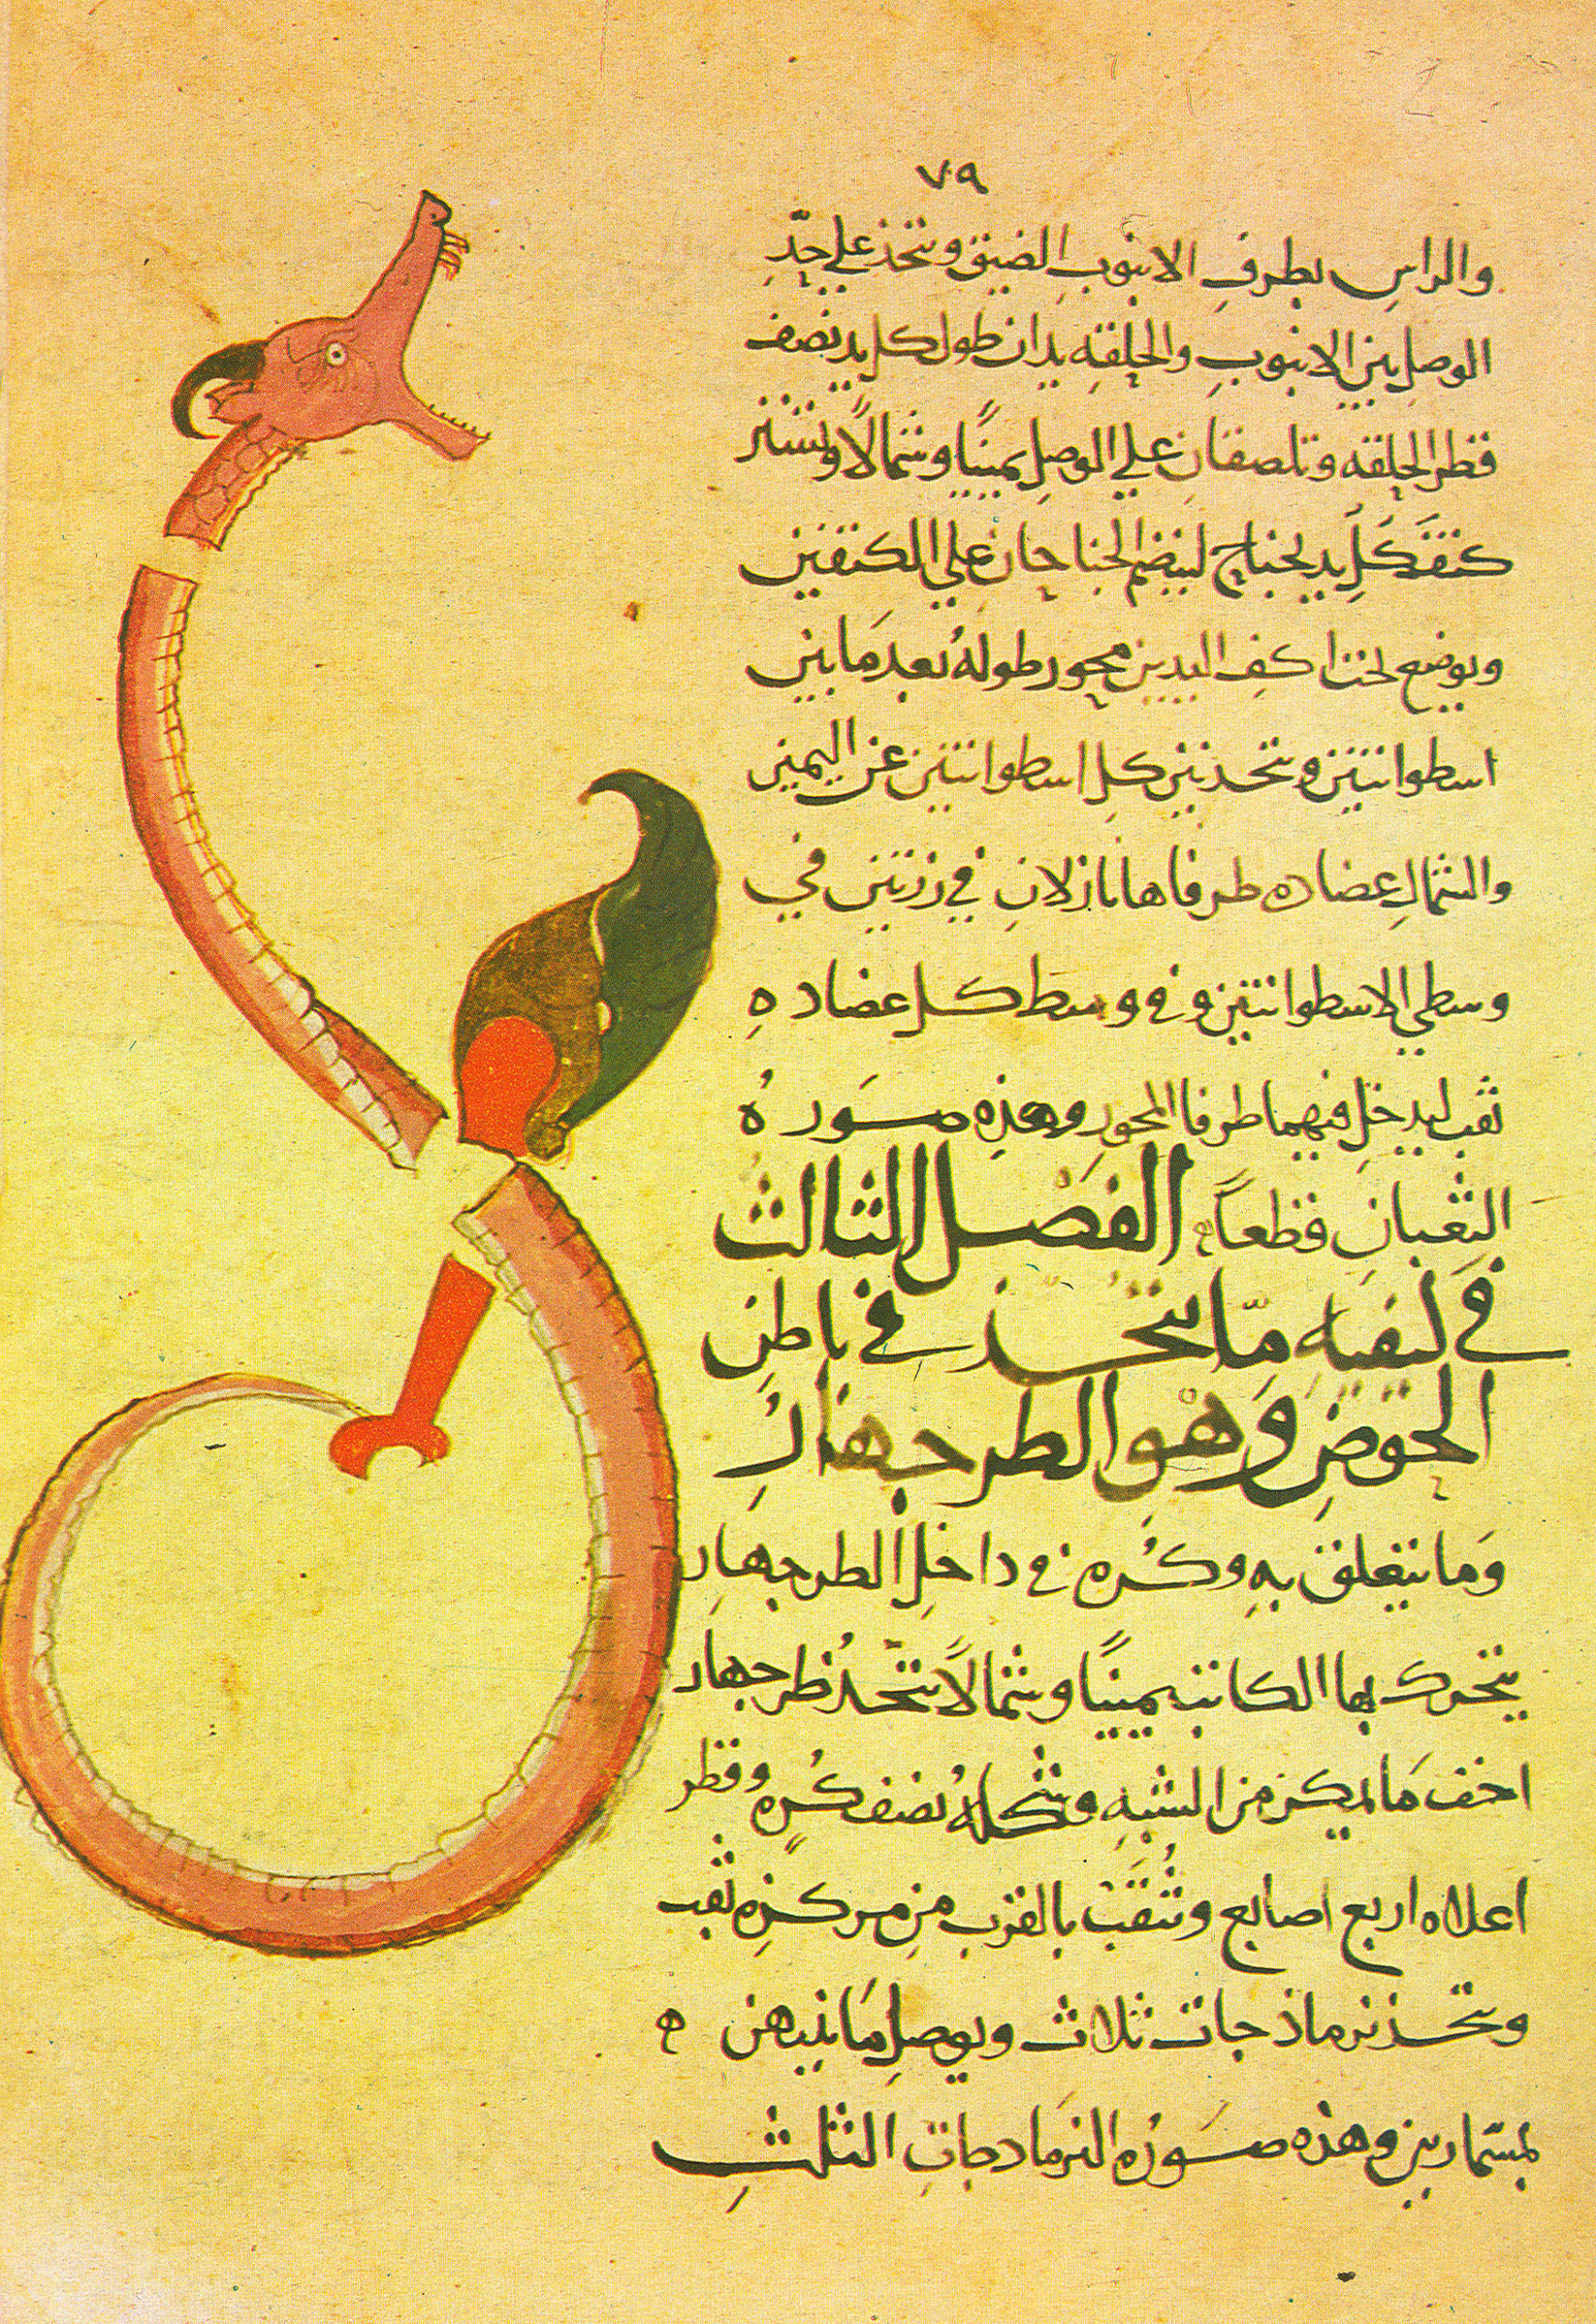 ٧٩
والراسِ بطرفِ الانبوبِ الضيق ويتخذ علي حدِّ
الوصلِ بين الانبوبِ والحلقهِ يدان طول كل يدٍ نصف
قطر الحلقه وتلصقان علي الوصلِ يمينًا وشمالًا
كتف كلِ يد بجناح لينضم الجناحان علي الكتفين
ويوضع تحت اكف اليدين محور طولهُ بعد مَا بين
اسطوانتين ويتخذ بين كلِ اسطوانتين عن اليمين
والشمالِ عضاده طرفاها نازلانِ في رزتين في
وسطي الاسطوانتين وفي وسط كل عضادهِ
ثقب ليدخل فيهما طرفا المحورِ وهذِه صَورهُ
الثعبانِ قطعاً الفصل الثالث
في كيفيه مّا يتخذ في باطنِ
الحوضِ وَهو الطرجهارُ
وَما يتعلق بهِ وكُره في داخلِ الطرجهارِ
يتحرك بها الكاتب يمينًا وشمالًا يتّخذُ طرجهار
اخف مَا يمكن من الشبهِ وشكلهُ نصف كُرهٍ وقطر
اعلاه اربع اصابع وتُثقَبْ بالقربِ مِن مركزِه ثقب
ويتخذ نرماذجات ثلاث ويوصل مَا بينهن ه
بمسمارين وهذه صَورُه النرمَاذجاتِ الثلثِ